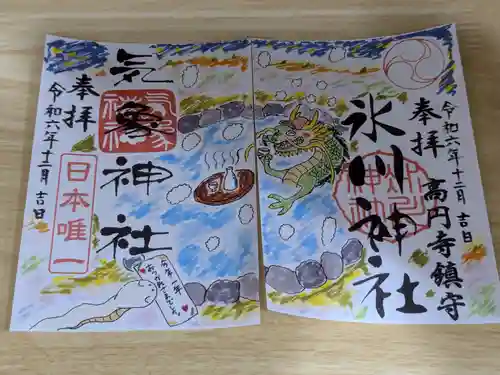 奉拝
氷川神社
高円寺鎮守
令和六年十二月 吉日
奉拝
気象神社
日本唯一
令和六年十二月 吉日
今年一年